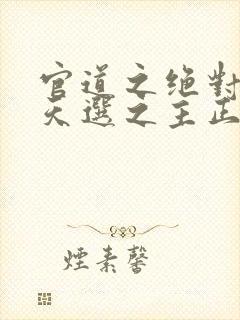 官道之绝對
天選之主正
煙素馨